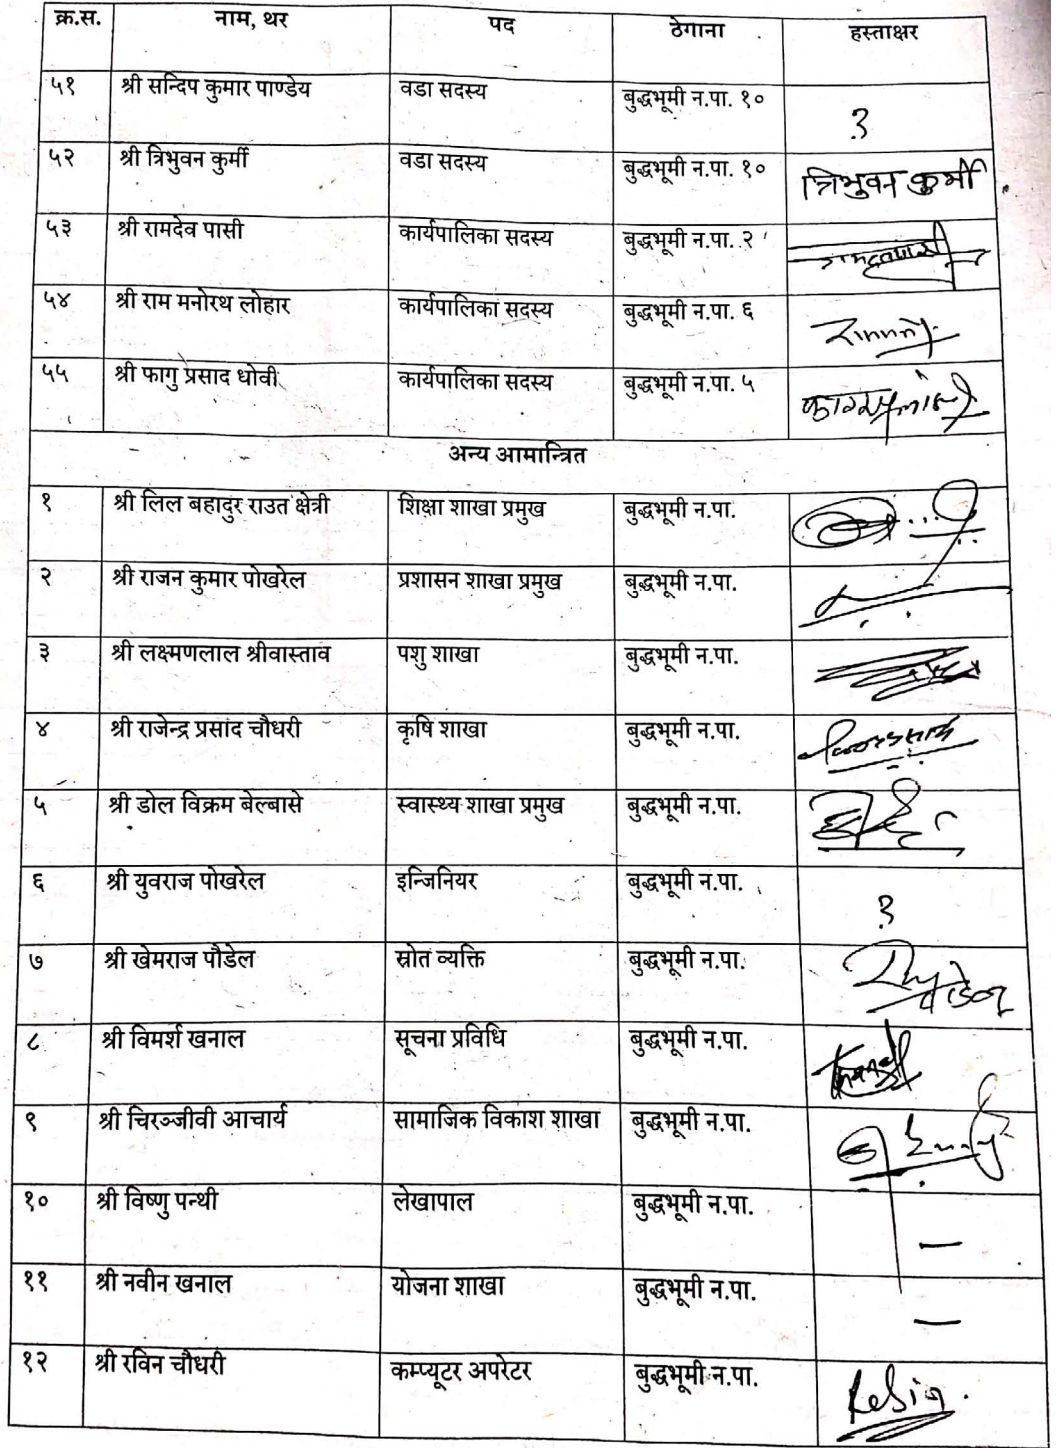 क्र.स. नाम, थर पद ठेगाना हस्ताक्षर
५१ श्री सन्दिप कुमार पाण्डेय वडा सदस्य बुद्धभूमी न.पा. १०
५२ श्री त्रिभुवन कुर्मी वडा सदस्य बुद्धभूमी न.पा. १० त्रिभुवन कुर्मी
५३ श्री रामदेव पासी कार्यपालिका सदस्य बुद्धभूमी न.पा. २
५४ श्री राम मनोरथ लोहार कार्यपालिका सदस्य बुद्धभूमी न.पा. ६
५५ श्री फागु प्रसाद धोवी कार्यपालिका सदस्य बुद्धभूमी न.पा. ५
अन्य आमान्त्रित
१ श्री लिल बहादुर राउत क्षेत्री शिक्षा शाखा प्रमुख बुद्धभूमी न.पा.
२ श्री राजन कुमार पोखरेल प्रशासन शाखा प्रमुख बुद्धभूमी न.पा.
३ श्री लक्ष्मणलाल श्रीवास्ताव पशु शाखा बुद्धभूमी न.पा.
४ श्री राजेन्द्र प्रसाद चौधरी कृषि शाखा बुद्धभूमी न.पा.
५ श्री डोल विक्रम बेल्बासे स्वास्थ्य शाखा प्रमुख बुद्धभूमी न.पा.
६ श्री युवराज पोखरेल इन्जिनियर बुद्धभूमी न.पा.
७ श्री खेमराज पौडेल स्रोत व्यक्ति बुद्धभूमी न.पा.
८ श्री विमर्श खनाल सूचना प्रविधि बुद्धभूमी न.पा.
९ श्री चिरञ्जीवी आचार्य सामाजिक विकाश शाखा बुद्धभूमी न.पा.
१० श्री विष्णु पन्थी लेखापाल बुद्धभूमी न.पा. —
११ श्री नवीन खनाल योजना शाखा बुद्धभूमी न.पा. —
१२ श्री रविन चौधरी कम्प्यूटर अपरेटर बुद्धभूमी न.पा.